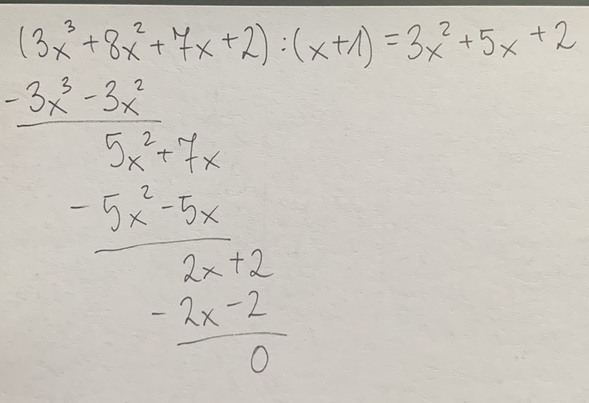 (3x³+8x²+7x+2):(x+1)=3x²+5x+2
-3x³-3x²
5x²+7x
-5x²-5x
2x+2
-2x-2
0